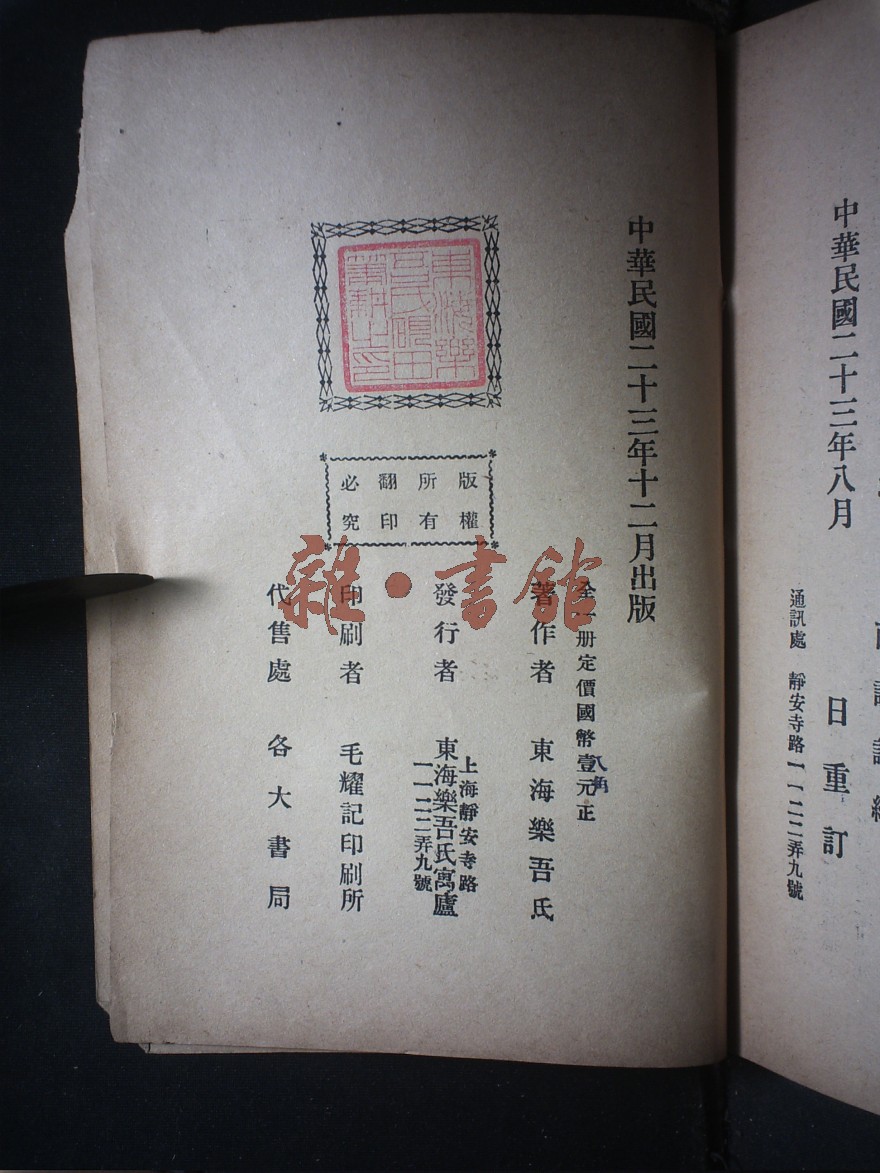 中華民國二十三年八月
日重訂
通訊處 靜安寺路一一二二弄九號
中華民國二十三年十二月出版
東海樂
吾氏硯田
著述之印
版權
所有
翻印
必究
全一册定價國幣壹元正
八角
著作者 東海樂吾氏
發行者 東海樂吾氏寓廬
上海靜安寺路
一一二二弄九號
印刷者 毛耀記印刷所
代售處 各大書局
雜·書館